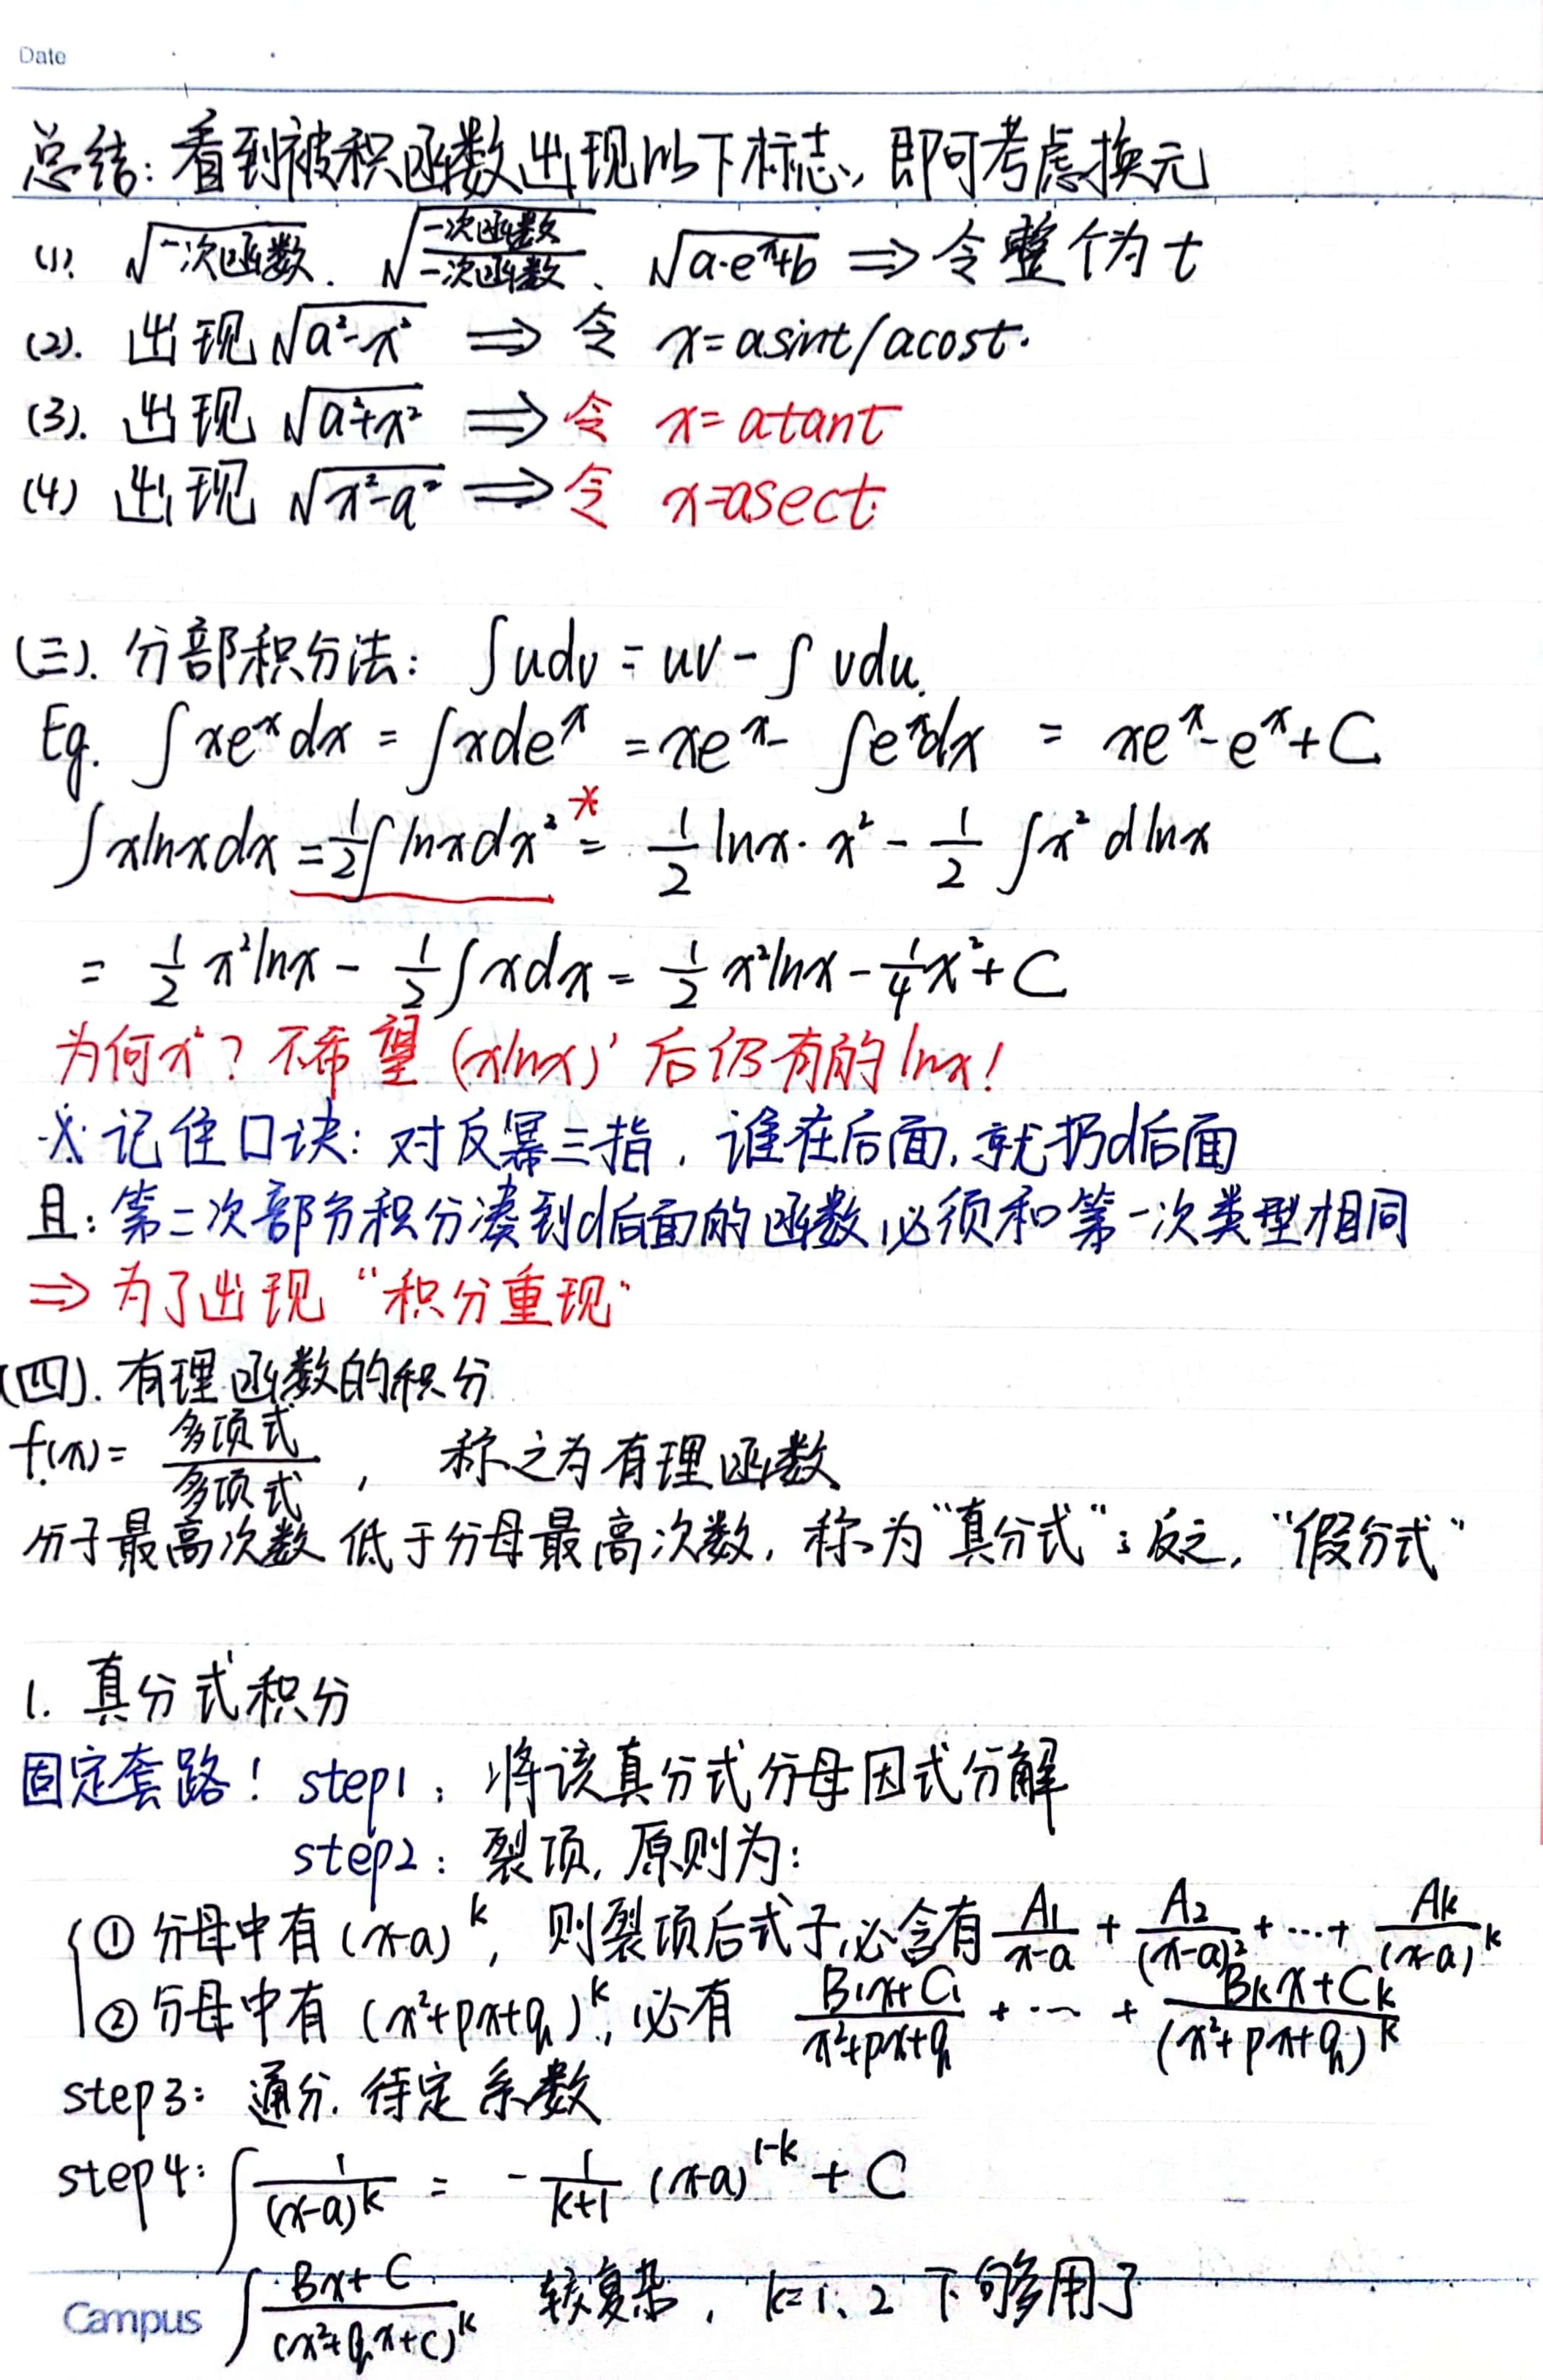 Date
总结：看到被积函数出现以下标志，即可考虑换元
(1). √一次函数、√(一次函数/一次函数)、√(a·eˣ+b) ⇒ 令整个为 t
(2). 出现 √(a²-x²) ⇒ 令 x=asint/acost.
(3). 出现 √(a²+x²) ⇒ 令 x=atant
(4) 出现 √(x²-a²) ⇒ 令 x=asect
(三). 分部积分法： ∫udv = uv - ∫vdu.
Eg. ∫xeˣdx = ∫xdeˣ = xeˣ - ∫eˣdx = xeˣ-eˣ+C
∫xlnxdx = 1/2∫lnxdx² *= 1/2 lnx·x² - 1/2 ∫x² dlnx
= 1/2 x²lnx - 1/2∫xdx = 1/2 x²lnx - 1/4x²+C
为何x²？不希望 (xlnx)' 后仍有的 lnx!
※ 记住口诀：对反幂三指，谁在后面，就扔d后面
且：第二次部分积分凑到d后面的函数必须和第一次类型相同
⇒ 为了出现“积分重现”
(四). 有理函数的积分
f(x)= 多项式/多项式 ， 称之为有理函数
分子最高次数低于分母最高次数，称为“真分式”；反之，“假分式”
1. 真分式积分
固定套路！ step1：将该真分式分母因式分解
step2：裂项，原则为：
① 分母中有 (x-a)^k ，则裂项后式子必含有 A₁/(x-a) + A₂/(x-a)² + ⋯ + Aₖ/(x-a)^k
② 分母中有 (x²+px+q)^k，必有 (B₁x+C₁)/(x²+px+q) + ⋯ + (Bₖx+Cₖ)/(x²+px+q)^k
step3： 通分，待定系数
step4： ∫1/(x-a)^k = -1/(k+1) (x-a)^(1-k) + C
∫(Bx+C)/(x²+qx+c)^k 较复杂， k=1、2 下够多用了
Campus